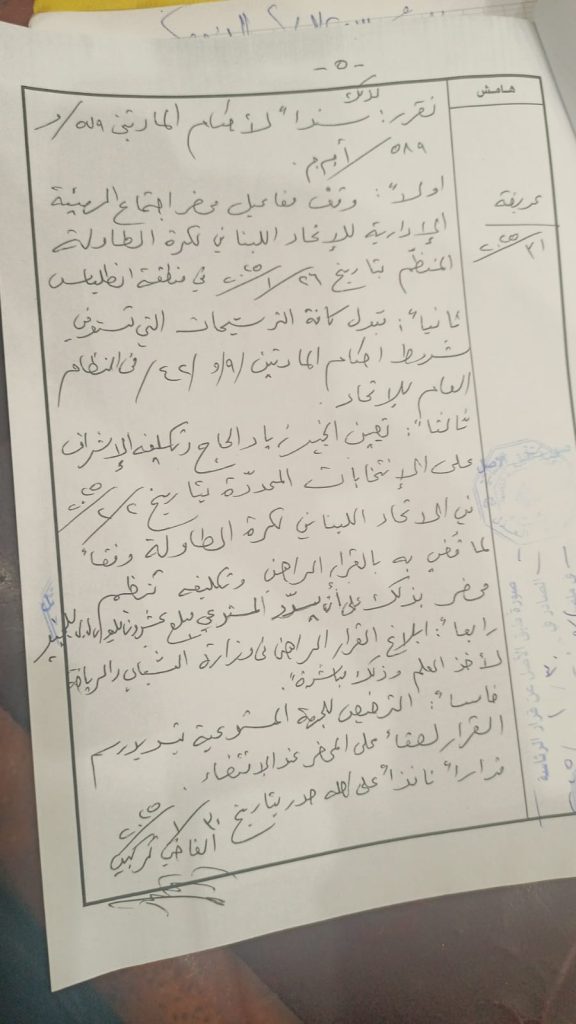 - ٥ -
هامش
لذلك
نقرر: سنداً لأحكام المادتين ٥٧٩/ و
٥٨٩/ أ.م.م.
اولاً: وقف مفاعيل محضر اجتماع الهيئة
الإدارية للإتحاد اللبناني لكرة الطاولة
المنظّم بتاريخ ٢٦/١/٢٠٢٥ في منطقة انطلياس
ثانياً: قبول كافة الترشيحات التي تستوفي
شروط احكام المادتين /٩/ و /٤٢/ من النظام
العام للإتحاد.
ثالثاً: تعيين الخبير زياد الحاج وتكليفه الإشراف
على الإنتخابات المحددة بتاريخ ٢/٢/٢٠٢٥
في الاتحاد اللبناني لكرة الطاولة وفقاً
لما قضي به بالقرار الراهن وتكليفه تنظيم
محضر بذلك على أن يسدّد المستدعي مبلغ عشرون مليون ل.ل. للخبير
رابعاً: ابلاغ القرار الراهن من وزارة الشباب والرياضة
لأخذ العلم وذلك مباشرةً.
خامساً: الترخيص للجهة المستدعية بتسديد رسم
القرار لصقاً على المحضر عند الاقتضاء.
قراراً نافذاً على اصله صدر بتاريخ ٣٠/١/٢٠٢٥
القاضي
عريضة
٣١/٢٠٢٥
صورة طبق الأصل عن قرار الرئاسة
الصادر في ٣٠/١/